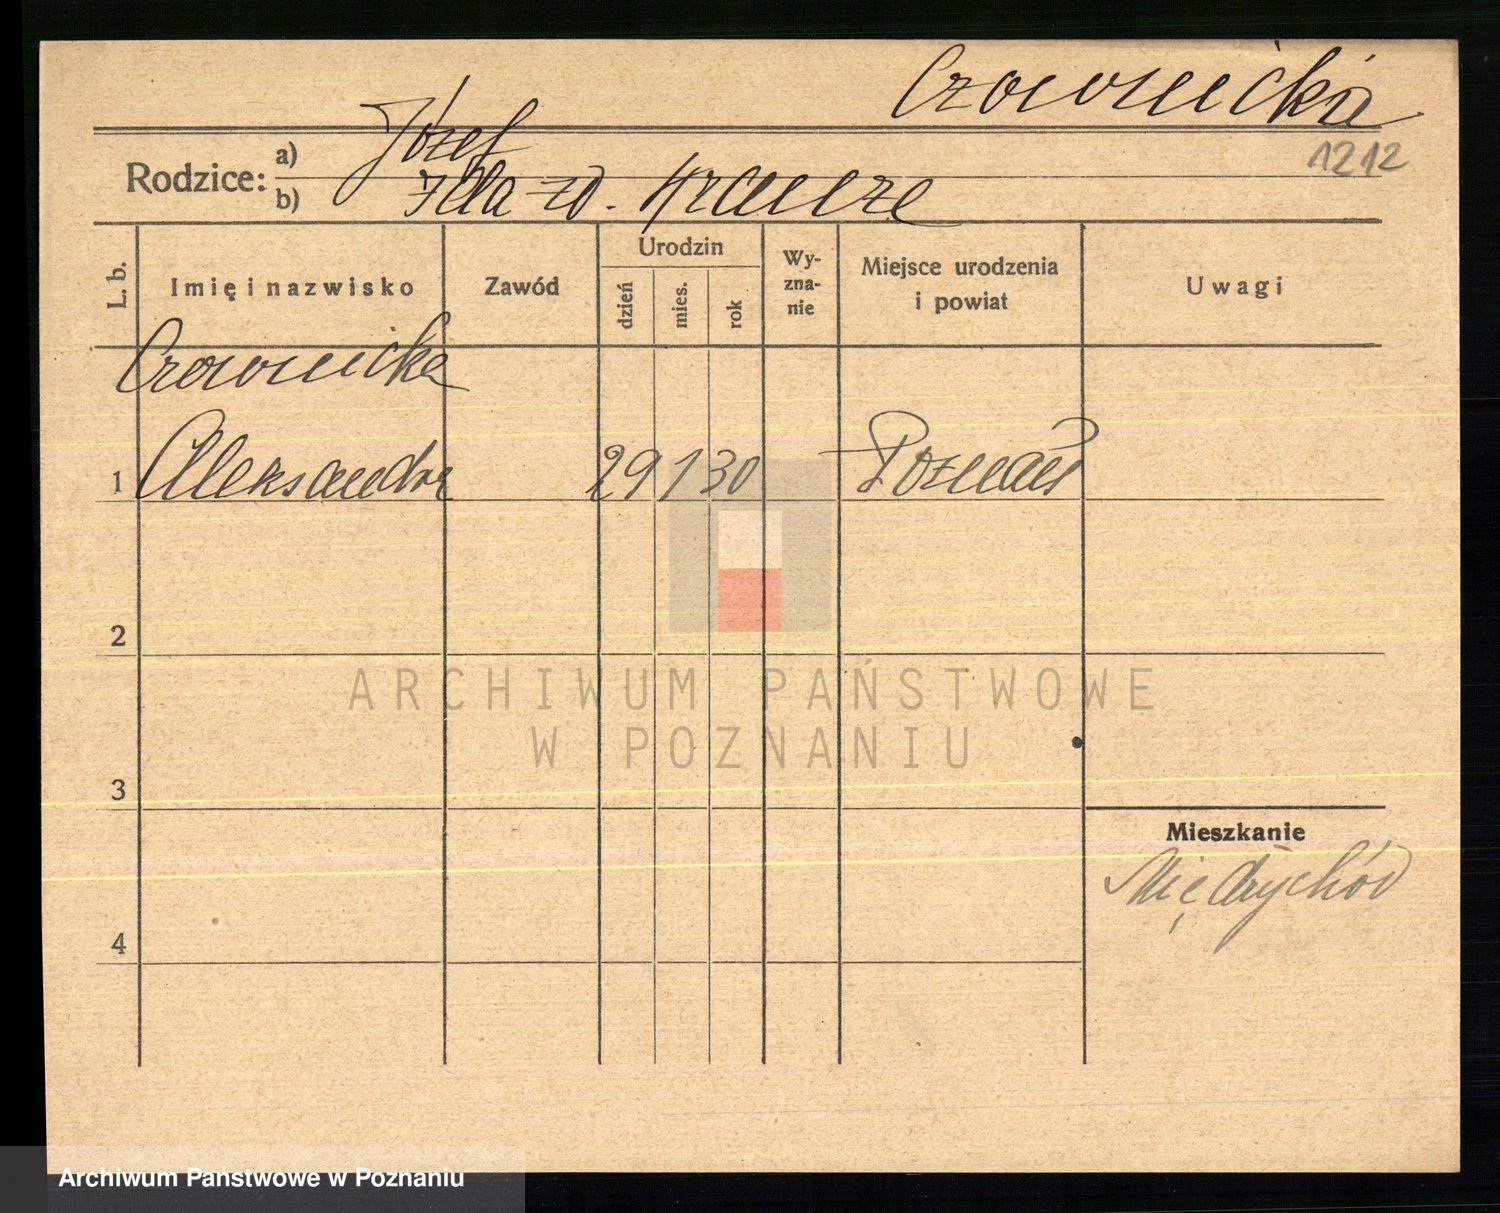 Czownicka
1212
Rodzice: a) Józef
b) Ida zd. Krauze
L. b.
Imię i nazwisko
Zawód
Urodzin
dzień
mies.
rok
Wy-
zna-
nie
Miejsce urodzenia
i powiat
Uwagi
Czownicka
1 Aleksandra 29 1 30 Poznań
2
ARCHIWUM PAŃSTWOWE
W POZNANIU
3
Mieszkanie
Międzychód
4
Archiwum Państwowe w Poznaniu